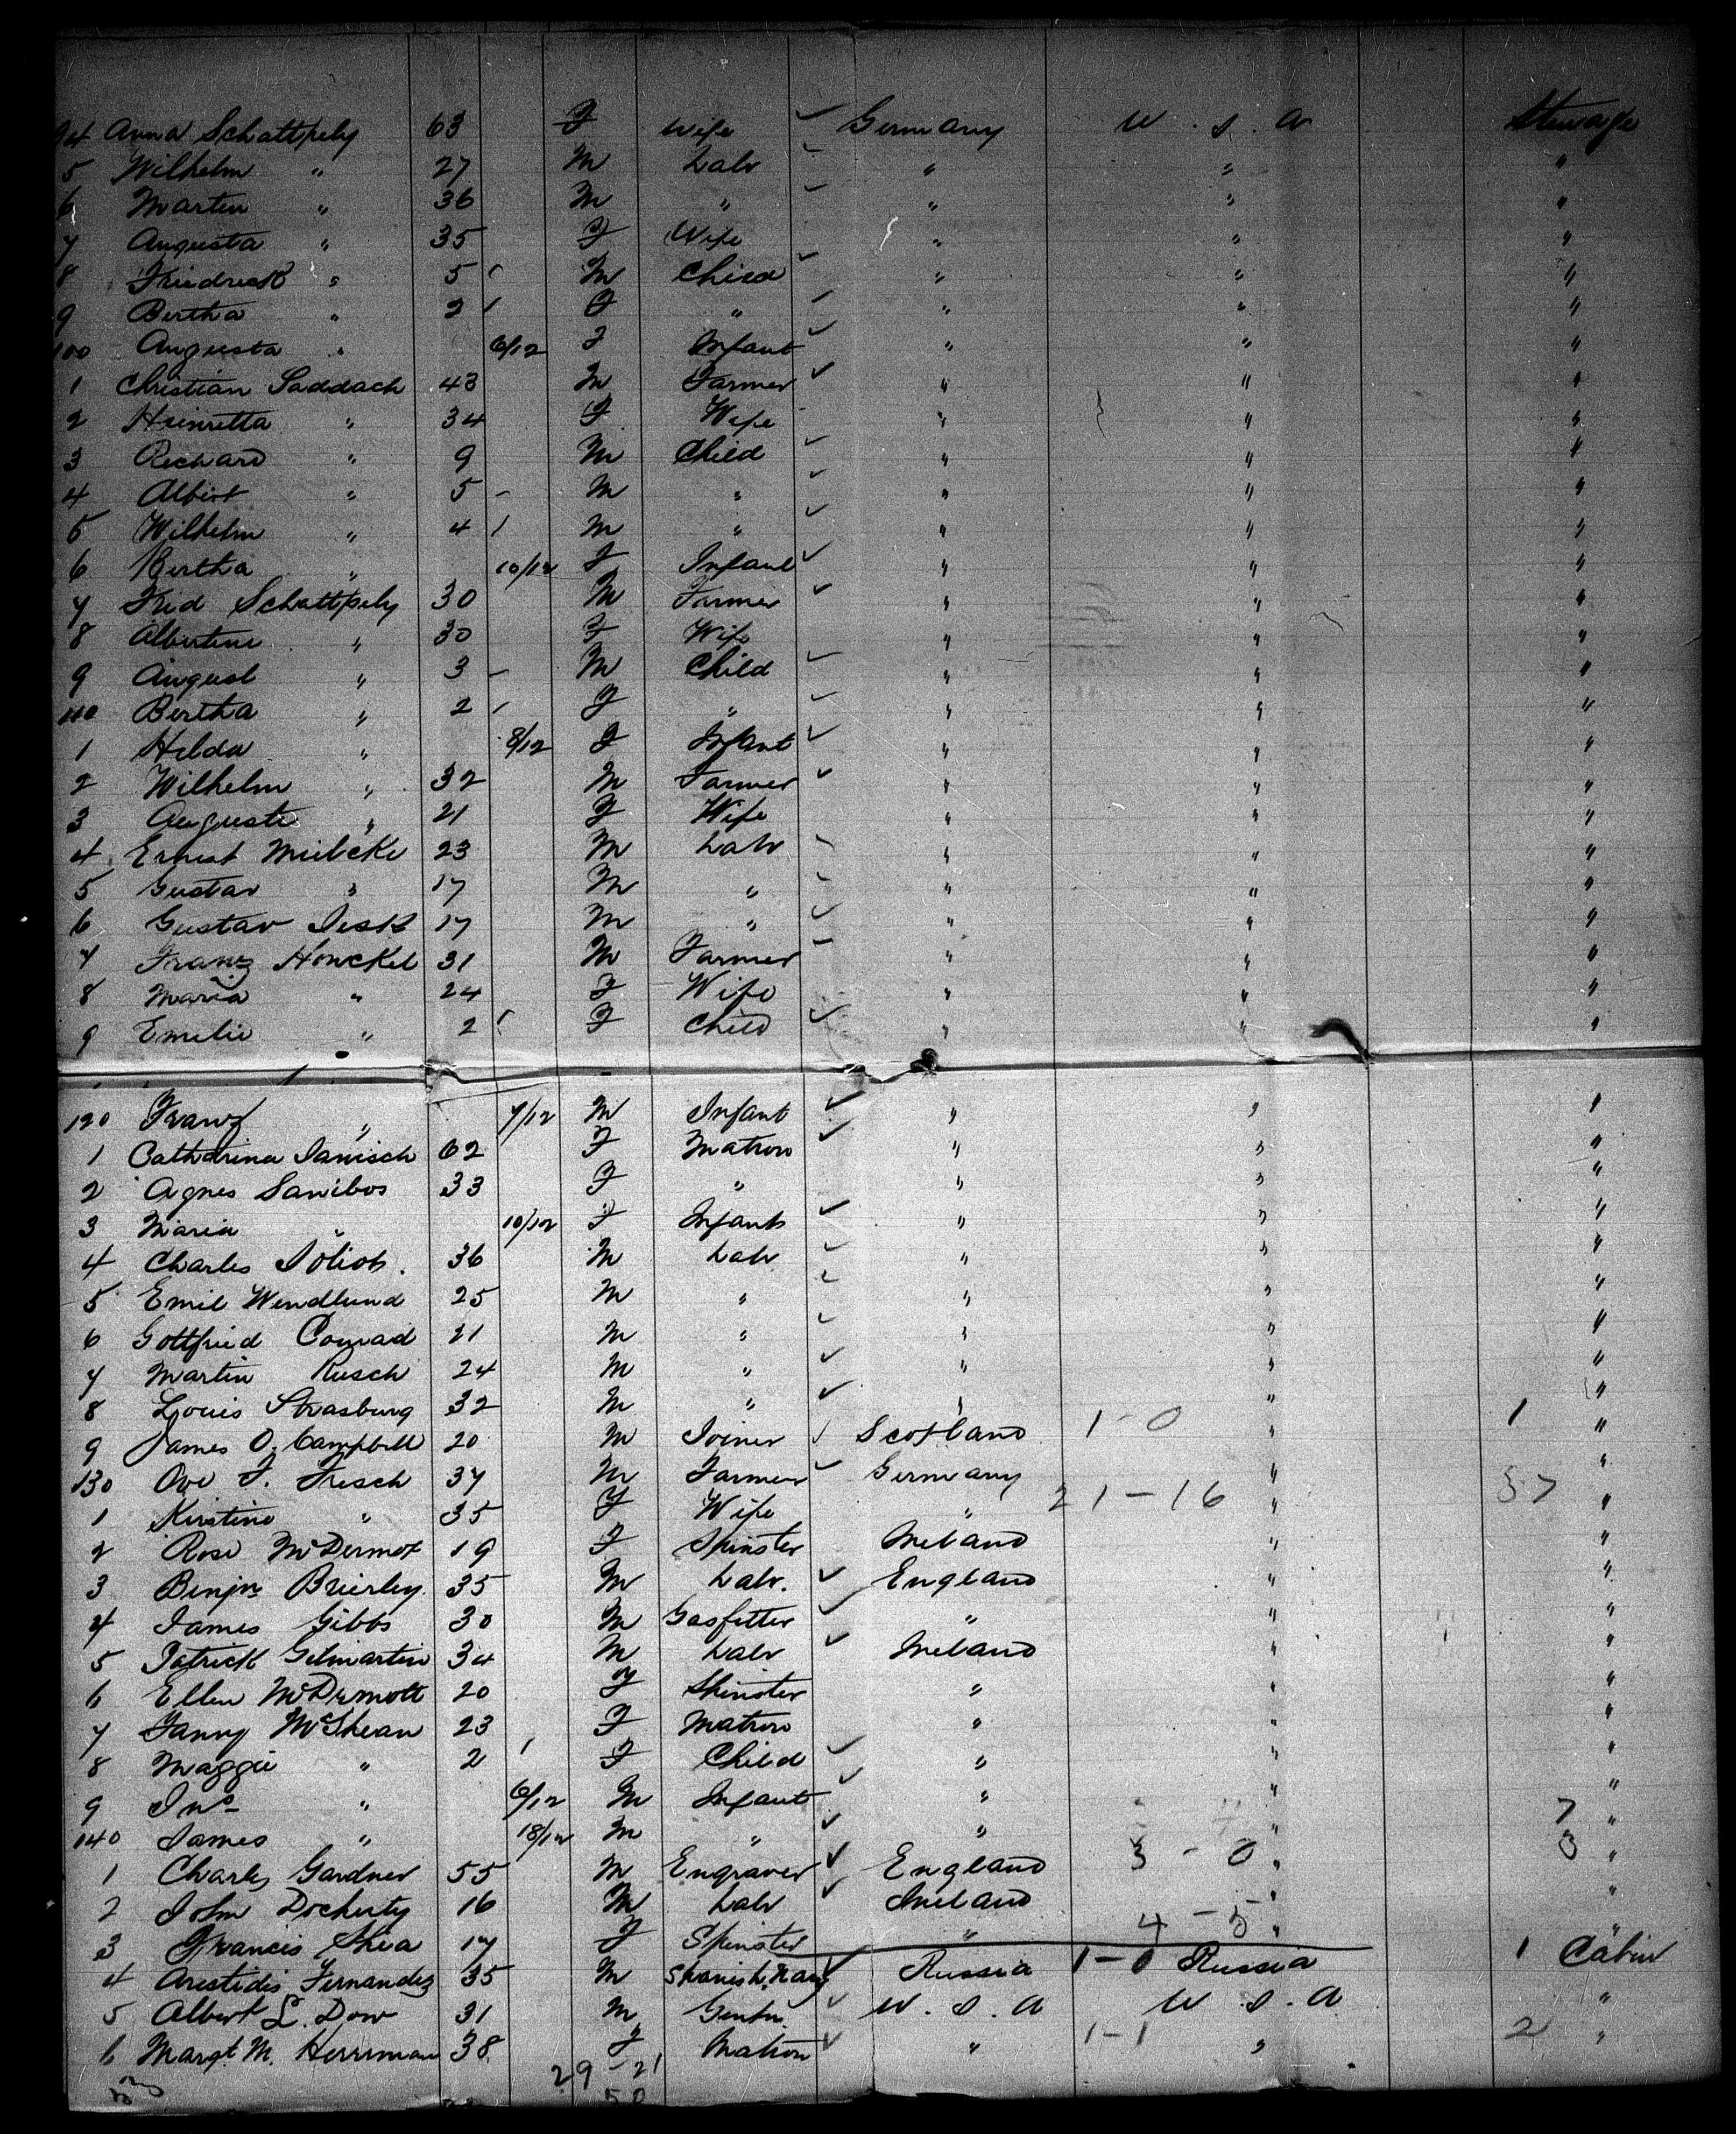 94 Anna Schattpely 63 F Wife ✓ Germany U. S. A Steerage
5 Wilhelm " 27 M Labr ✓ " " "
6 Marten " 36 M " ✓ " " "
7 Augusta " 35 F Wife " " "
8 Friedrick " 5 M Child ✓ " " "
9 Bertha " 2 F " ✓ " " "
100 Augusta " 6/12 F Infant ✓ " " "
1 Christian Saddach 43 M Farmer ✓ " " "
2 Heinretta " 34 F Wife " " "
3 Richard " 9 M Child ✓ " " "
4 Albert " 5 - M " ✓ " " "
5 Wilhelm " 4 M " ✓ " " "
6 Bertha " 10/12 F Infant ✓ " " "
7 Fred Schattpely 30 M Farmer ✓ " " "
8 Albertine " 30 F Wife " " "
9 August " 3 - M Child ✓ " " "
110 Bertha " 2 F " ✓ " " "
1 Hilda " 8/12 F Infant ✓ " " "
2 Wilhelm " 32 M Farmer ✓ " " "
3 Auguste " 21 F Wife " " "
4 Ernest Mielcke 23 M Labr ✓ " " "
5 Gustav " 17 M " ✓ " " "
6 Gustav Jesk 17 M " ✓ " " "
7 Franz Honckel 31 M Farmer ✓ " " "
8 Maria " 24 F Wife " " "
9 Emelie " 2 F Child ✓ " " "
120 Franz " 7/12 M Infant ✓ " " "
1 Catharina Janisch 62 F Matron ✓ " " "
2 Agnes Sanibos 33 F " " " "
3 Maria " 10/12 F Infant ✓ " " "
4 Charles 36 M Labr ✓ " " "
5 Emil Wendlund 25 M " ✓ " " "
6 Gottfried Conrad 21 M " ✓ " " "
7 Martin Rusch 24 M " ✓ " " "
8 Louis Strasburg 32 M " ✓ " " "
9 James O. Campbell 20 M Joiner ✓ Scotland 1-0 " 1 "
130 Ove F. Fresch 37 M Farmer ✓ Germany " "
1 Kirstine " 35 F Wife " 21-16 " 37 "
2 Rose McDermot 19 F Spinster Ireland " "
3 Benjn Brierley 35 M Labr. ✓ England " "
4 James Gibbs 30 M Gasfitter ✓ " " "
5 Patrick Gilmartin 34 M Labr ✓ Ireland " "
6 Ellen McDermott 20 F Spinster " " "
7 Fanny McShean 23 F Matron " " "
8 Maggie " 2 F Child ✓ " " "
9 Jno " 6/12 M Infant ✓ " " "
140 James " 18/12 M " ✓ " " 7 "
1 Charles Gardner 55 M Engraver ✓ England 3-0 " 3 "
2 John Docherty 16 M Labr ✓ Ireland " "
3 Francis Shea 17 F Spinster " 4-5 " "
4 Arestidis Fernandez 35 M Spanish Navy ✓ Russia 1-0 Russia 1 Cabin
5 Albert L. Dow 31 M Gentn. ✓ U. S. A U. S. A "
6 Margt. M. Herriman 38 F Matron ✓ " 1-1 " 2 "
29-21
50